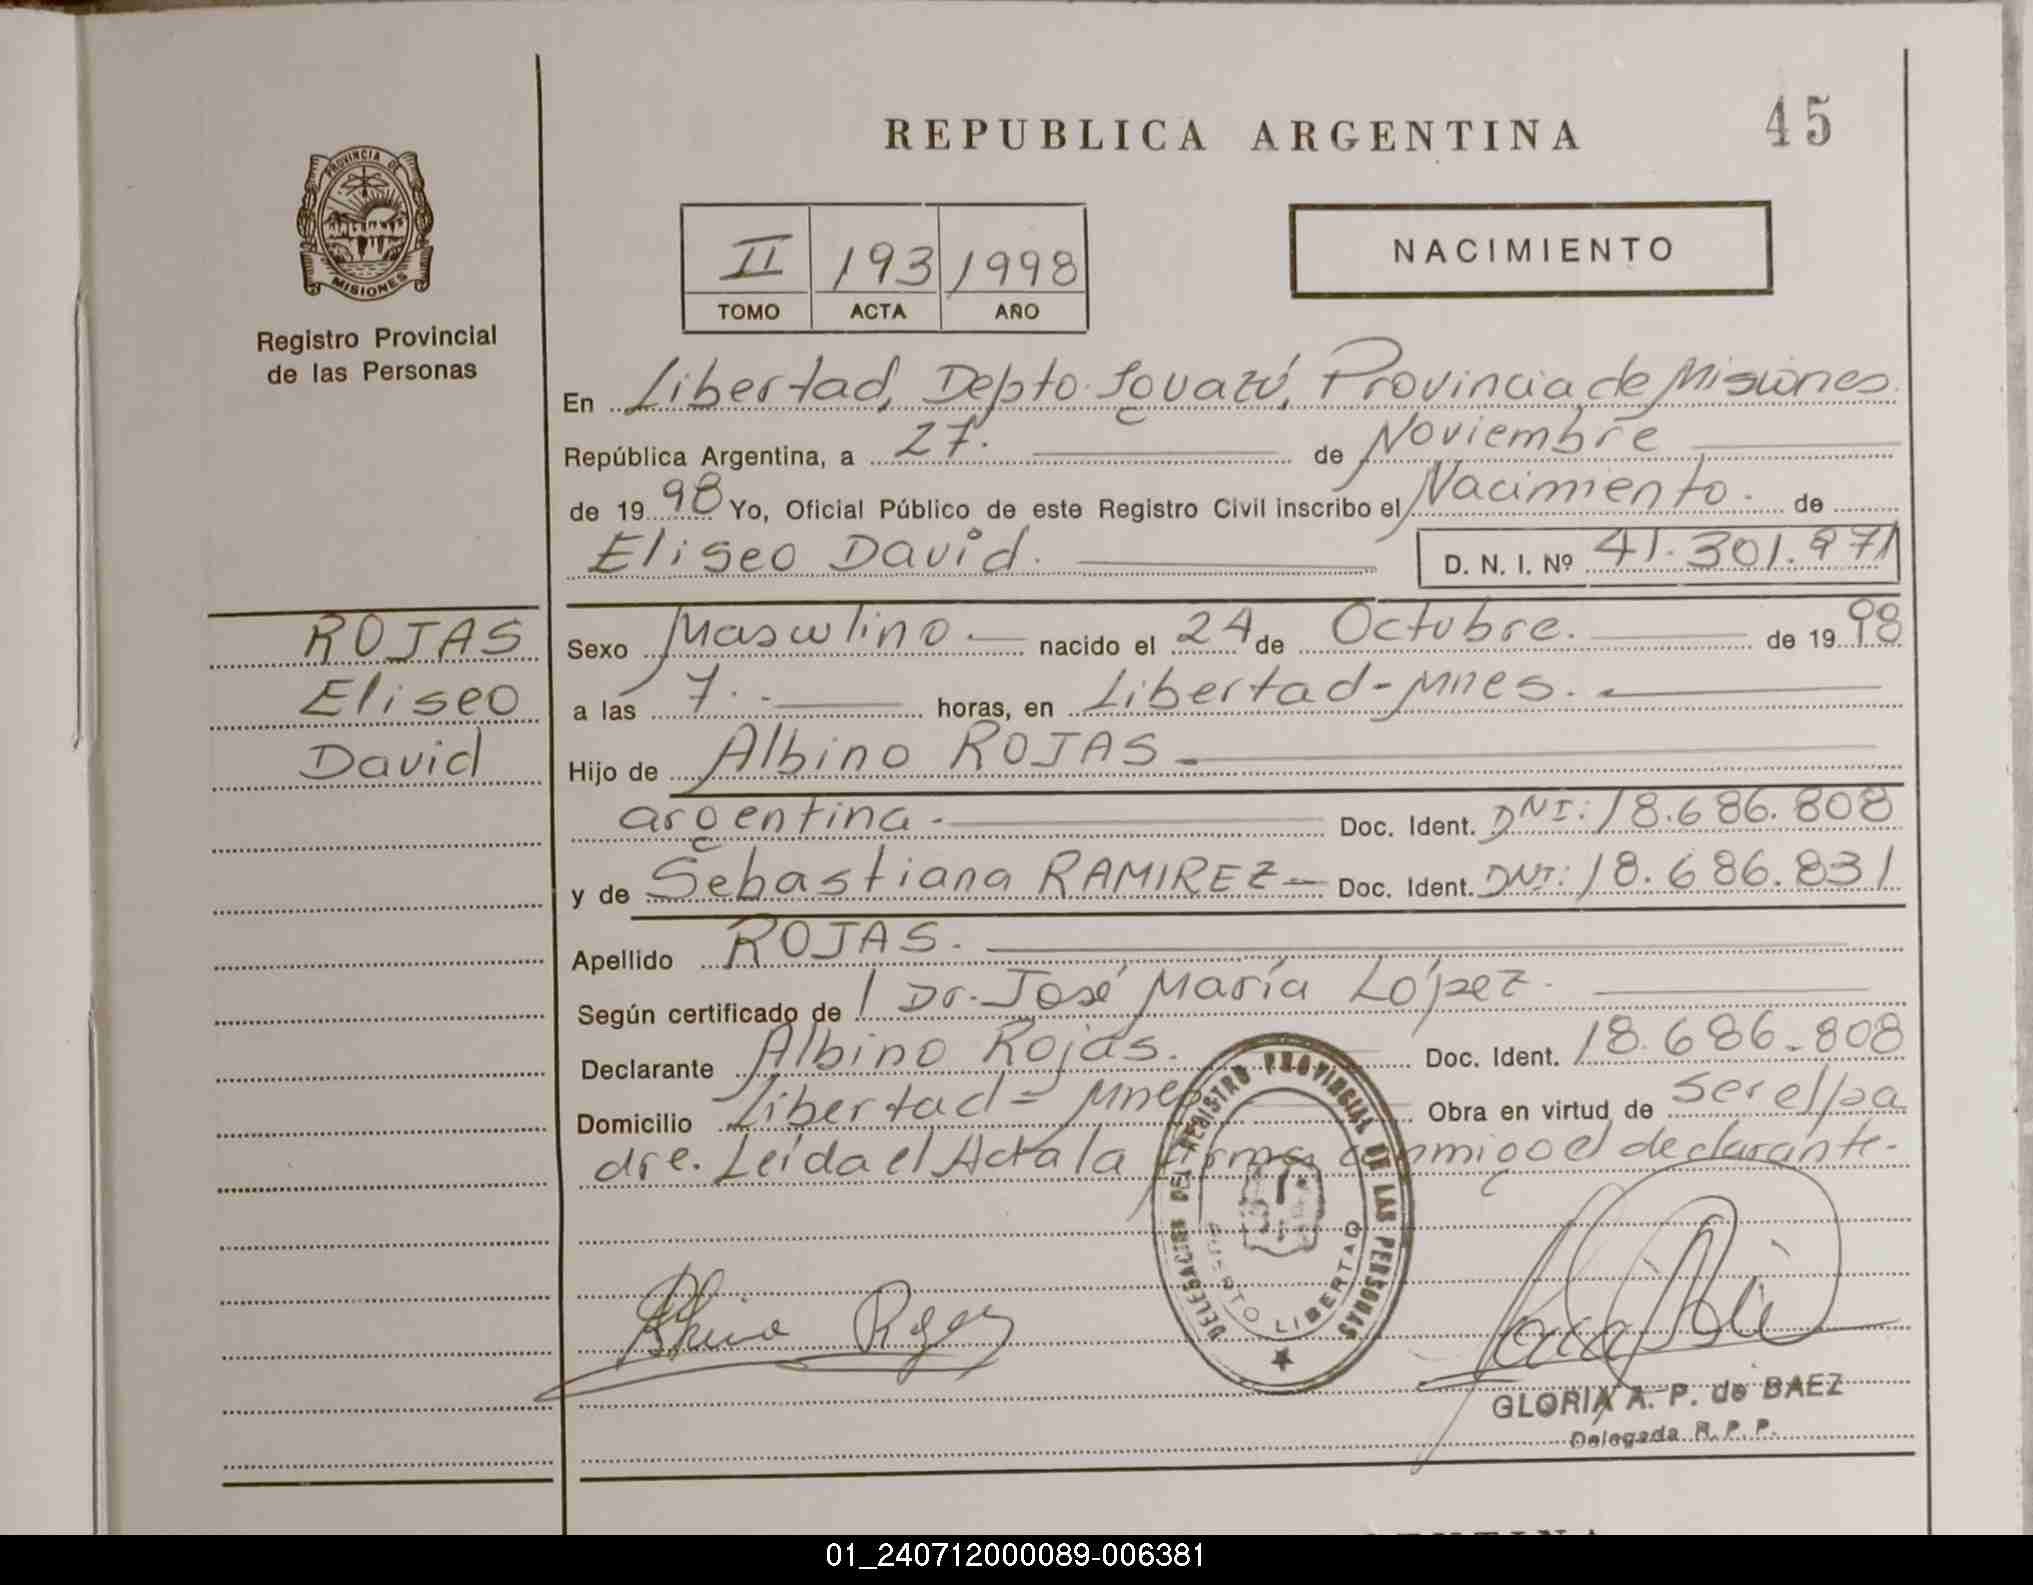 REPUBLICA ARGENTINA
45
PROVINCIA DE
MISIONES
Registro Provincial
de las Personas
II 193 1998
TOMO ACTA AÑO
NACIMIENTO
En Libertad, Depto. Iguazú, Provincia de Misiones.
República Argentina, a 27. de Noviembre
de 1998 Yo, Oficial Público de este Registro Civil inscribo el Nacimiento. de
Eliseo David. D. N. I. Nº 41.301.971
ROJAS
Eliseo
David
Sexo Masculino. nacido el 24 de Octubre. de 1998
a las 7. horas, en Libertad-Mnes.
Hijo de Albino ROJAS
argentina. Doc. Ident. DNI: 18.686.808
y de Sebastiana RAMIREZ Doc. Ident. DNI: 18.686.831
Apellido ROJAS.
Según certificado de Dr. José María López.
Declarante Albino Rojas. Doc. Ident. 18.686.808
Domicilio Libertad = Mnes Obra en virtud de ser el pa
dre. Leída el Acta la firma conmigo el declarante.
DELEGACION DEL REGISTRO PROVINCIAL DE LAS PERSONAS
PUERTO LIBERTAD
Albino Rojas
GLORIA A. P. de BAEZ
Delegada R. P. P.
01_240712000089-006381